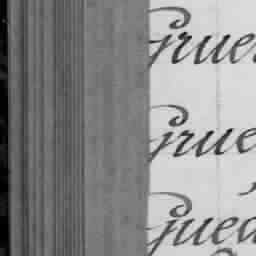 Grue
Grue
Gued